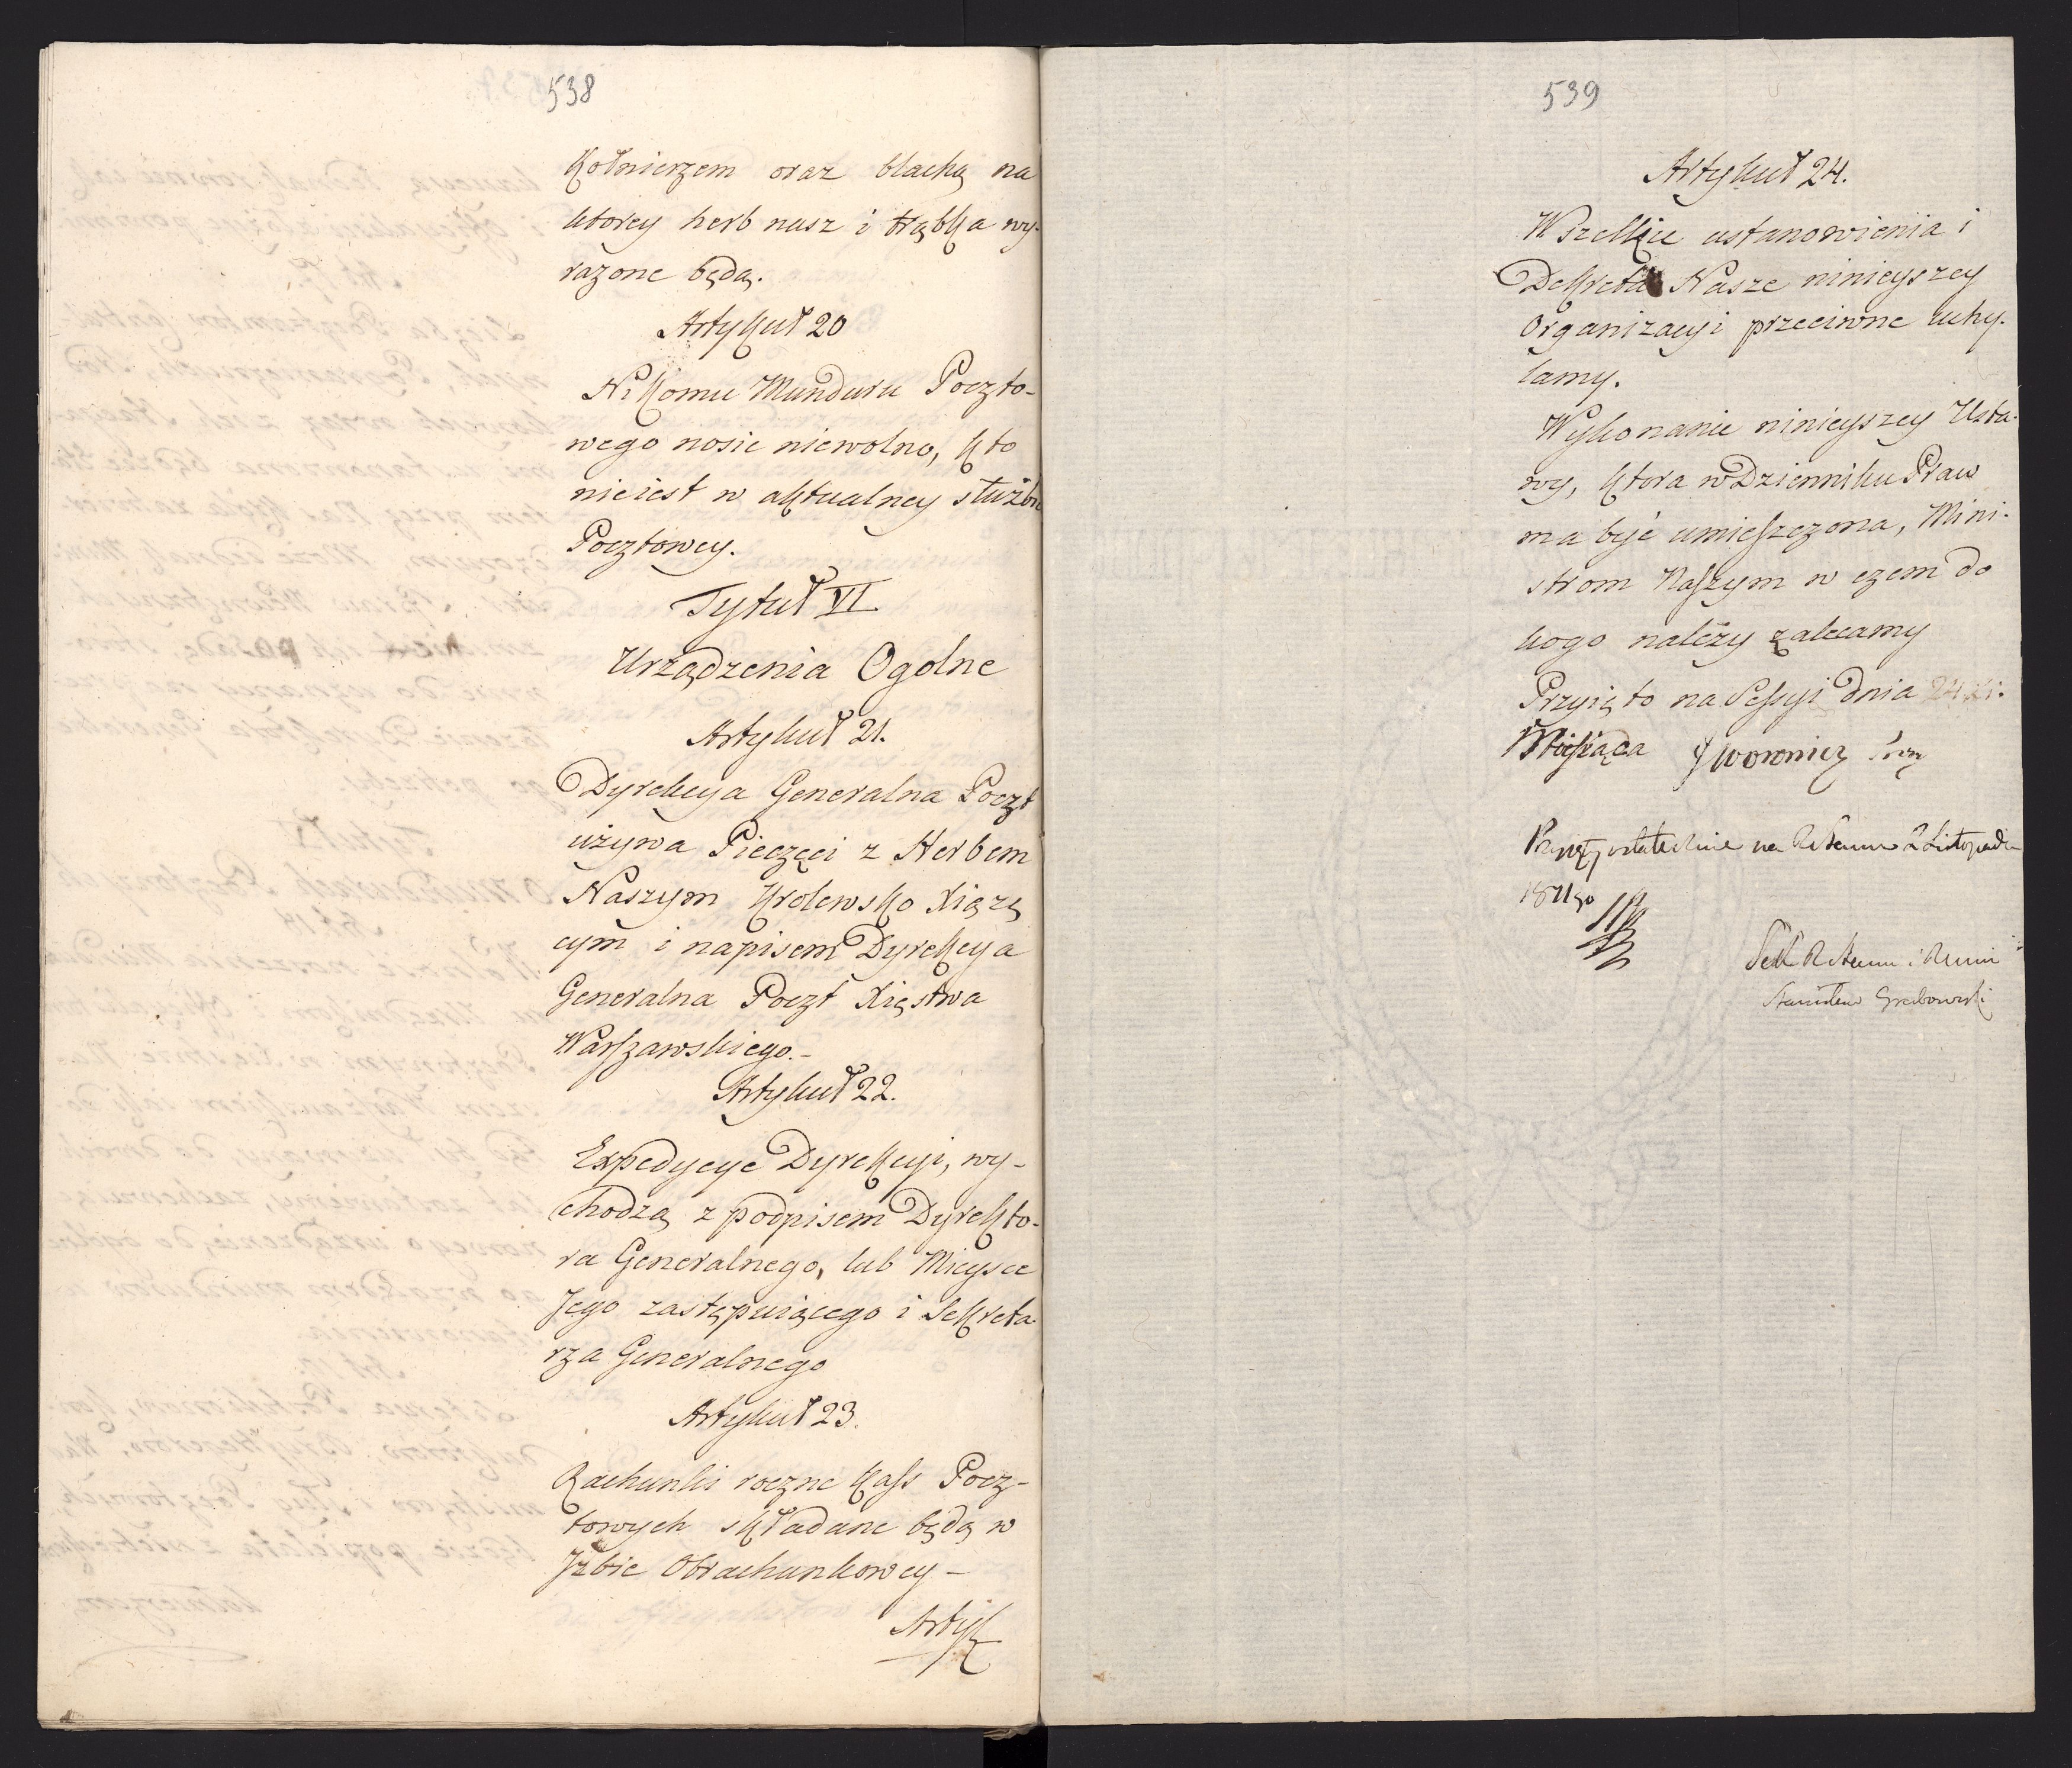 538
Kołnierzem oraz blachą na
ktorey herb nasz i trąbka wy-
rażone będą.
Artykuł 20
Nikomu Munduru Poczto-
wego nosic niewolno, kto
nieiest w aktualney służbie
Pocztowey.
Tytuł VI
Urządzenia Ogolne
Artykuł 21.
Dyrekcya Generalna Poczt
używa Pieczęci z Herbem
Naszym Krolewsko Xiążę
cym i napisem Dyrekcya
Generalna Poczt Xięstwa
Warszawskiego.-
Artykuł 22.
Expedycye Dyrekcyi, wy-
chodzą z podpisem Dyrekto-
ra Generalnego, lub Mieysce
Jego zastępuiącego i Sekreta-
rza Generalnego
Artykuł 23.
Rachunki roczne Kass Pocz-
towych składane będą w
Jzbie Obrachunkowey -
Artyk
539
Artykuł 24.
Wszelkie ustanowienia i
Dekreta Nasze ninieyszey
Organizacyi przeciwne uchy-
lamy.
Wykonanie ninieyszey Usta-
wy, ktora w Dzienniku Praw
ma być umieszczona, Mini-
strom Naszym w czem do
kogo należy zalecamy
Przyięto na Sessyi dnia 24
Miesiąca
Przyięty ostatecznie na R Stanu 2 Listopada
1811go
Sek R Stanu i R Mini
Stanisław Grabowski